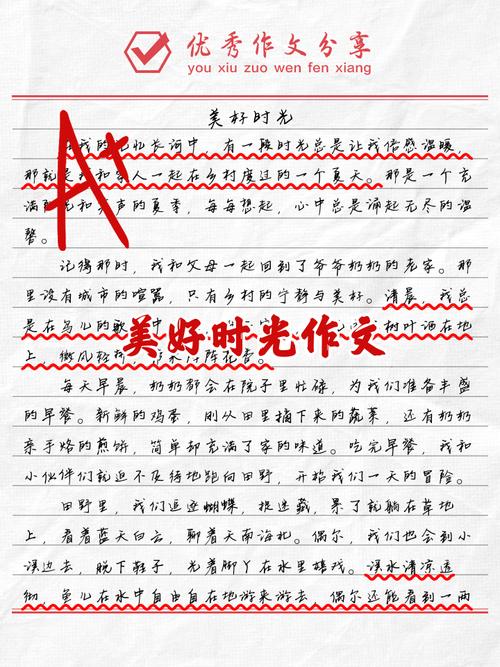 优秀作文分享
you xiu zuo wen fen xiang
美好时光
A+
我的记忆长河中，有一段时光总是让我倍感温暖，
那就是我和家人一起在乡村度过的一个夏天。那是一个充
满和声的夏季，每每想起，心中总是涌起无尽的温
馨。
记得那时，我和父母一起回到了爷爷奶奶的老家。那
里没有城市的喧嚣，只有乡村的宁静与美好。清晨，我总
是在鸟儿的歌树叶洒在地
美好时光作文
上，微风轻拂，阵花香。
每天早晨，奶奶都会在院子里忙碌，为我们准备丰盛
的早餐。新鲜的鸡蛋，刚从田里摘下来的蔬菜，还有奶奶
亲手烙的煎饼，简单却充满了家的味道。吃完早餐，我和
小伙伴们就迫不及待地跑向田野，开始我们一天的冒险。
田野里，我们追逐蝴蝶，捉迷藏，累了就躺在草地
上，看着蓝天白云，聊着天南海北。偶尔，我们也会到小
溪边去，脱下鞋子，光着脚丫在水里嬉戏。溪水清凉透
彻，鱼儿在水中自由自在地游来游去，偶尔还能看到一两